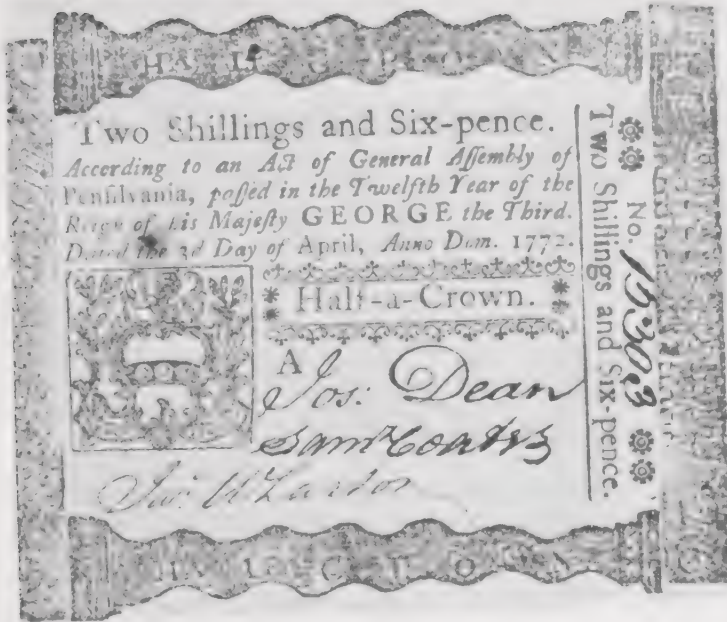 HALF CROWN
Two Shillings and Six-pence.
According to an Act of General Aſſembly of
Penſilvania, paſſed in the Twelfth Year of the
Reign of his Majeſty GEORGE the Third.
Dated the 3d Day of April, Anno Dom. 1772.
Half-a-Crown.
A
Jos: Dean
Saml Coates
No. 15303
Two Shillings and Six-pence.